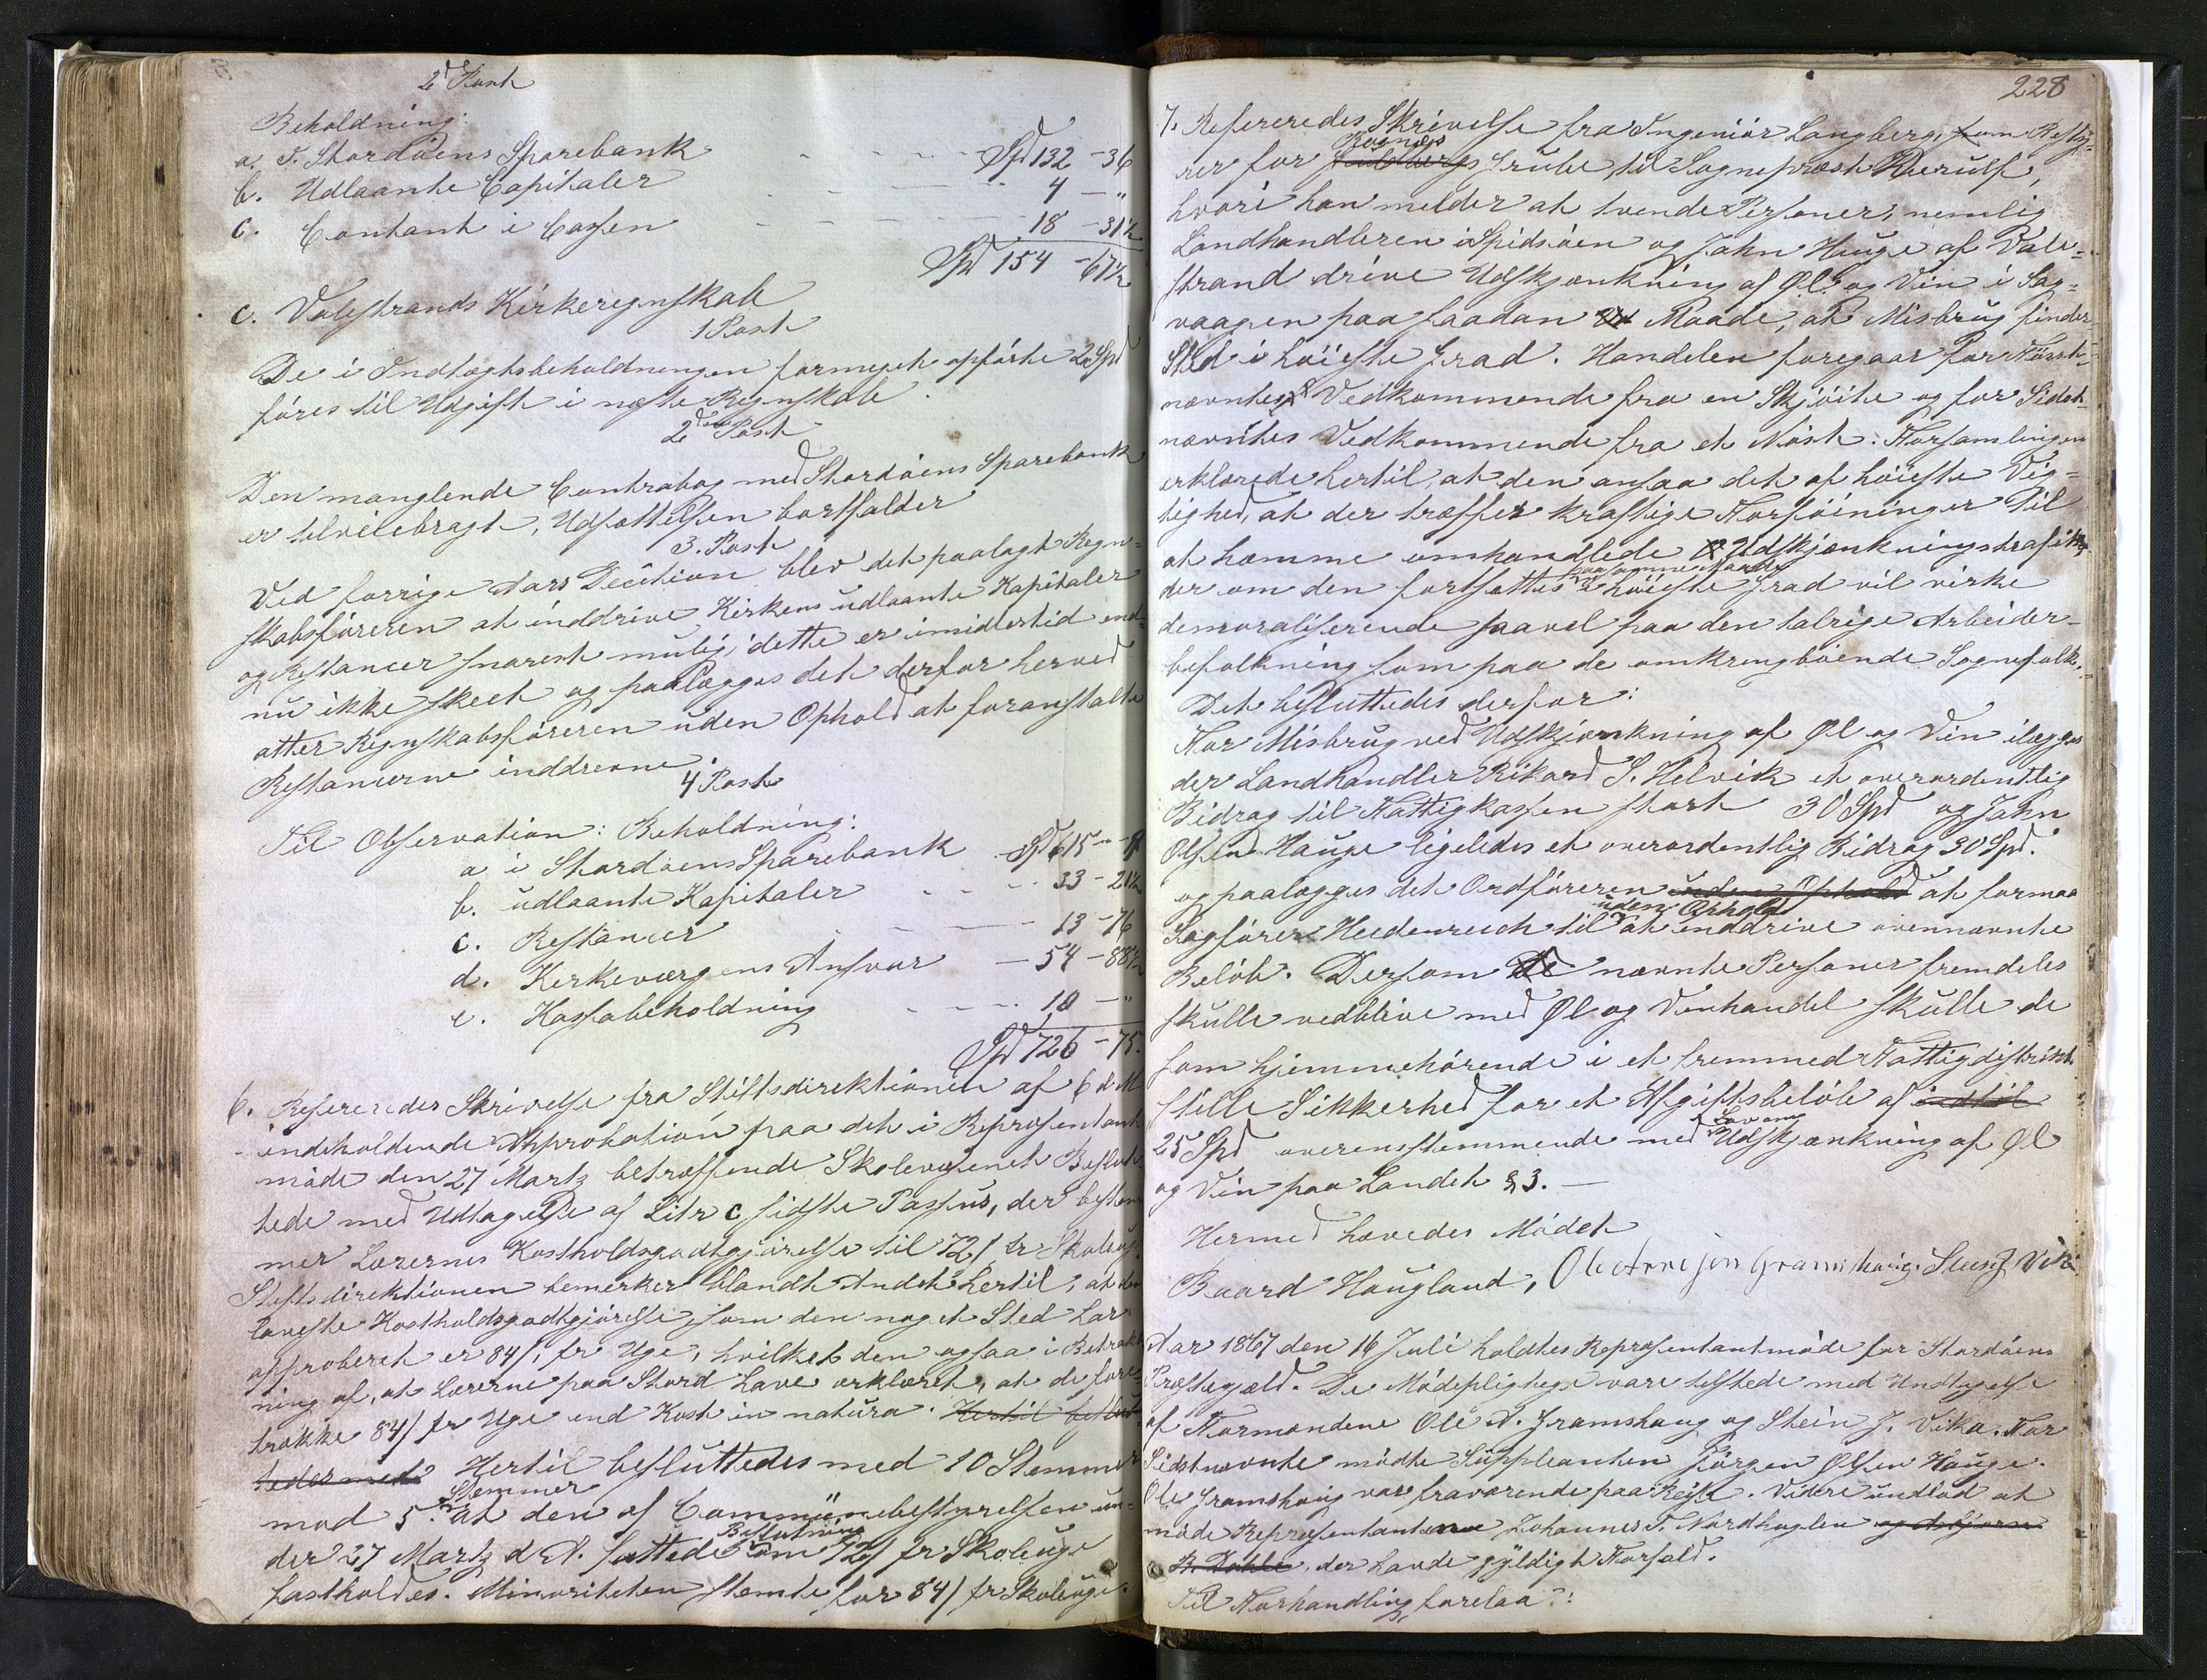 2d Post
Beholdning:
a. I. Stordøens Sparebank - - - - Spd 132 - 36
b. Udlaante Capitaler - - - - 4 - "
c. Contant i Cassen - - - - 18 - 31½
Spd 154 - 67½
c. Valestrands Kirkeregnskab
1 Post
De i Indtægtsbeholdningen formeget opførte 2 Spd
føres til Udgift i næste Regnskab.
2den Post
Den manglende Contrabog med Stordøens Sparebank
er tilveiebragt, Udsættelsen bortfalder
3. Post
Ved forrige Aars Decision blev det paalagt Regn=
skabsføreren at inddrive Kirkens udlaante Kapitaler
og Restancer snarest mulig; dette er imidlertid end=
nu ikke skeet og paalægges det derfor herved
atter Regnskabsføreren uden Ophold at foranstalte
Restancerne inddrevne.
4 Post
Til Observation: Beholdning:
a i Stordøens Sparebank - Spd 615 - "
b. udlaante Kapitaler - - - 33 - 21½
c. Restancer - - - 13 - 76
d. Kirkeværgens Ansvar - 54 - 88½
e. Kassabeholdning - - - 10 - "
Spd 726 - 75.
6. Refereredes Skrivelse fra Stiftsdirektionen af 6 d. M
indeholdende Approbation paa det i Repræsentant
møde den 27 Martz betræffende Skolevæsenet Beslut=
tede med Udtagelse af Litr c sidste Passus, der bestem
mer Lærernes Kostholdsgodtgjørelse til 72 s pr Skoleuge.
Stiftsdirektionen bemerker blandt Andet hertil, at den
laveste Kostholdsgodtgjørelse, som den noget Sted har
approberet er 84 s, pr Uge, hvilket den ogsaa i Betragt
ning af, at Lærerne paa Stord have erklæret, at de fore=
trække 84 s pr Uge end Kost in natura. Hertil beslut=
tedes med Hertil besluttedes med 10 Stemmer
Stemmer
mod 5. at den af Communebestyrelsen un=
Beslutning
der 27 Martz d. A. fattede om 72 s pr Skoleuge
fastholdes. Minoriteten stemte for 84 s pr Skoleuge.
228
7. Refereredes Skrivelse fra Ingeniør Langberg, som Besty=
Vognes
rer for Grube, til Sognepræst Bierulf,
hvori han melder at tvende Personer, nemlig
Landhandleren i Spidsøen og John Hauge af Vale=
strand drive Udskjænkning af Øl og Vin i Sag=
vaagen paa saadan Maade, at Misbrug finder
Sted i høieste Grad. Handelen foregaar for Først=
nævntes Vedkommende fra en Skjøite og for Sidst=
nævntes Vedkommende fra et Nøst. Forsamlingen
erklærede hertil, at den ansaa det af høieste Vig=
tighed, at der træffes kraftige Forføininger til
at hæmme omhandlede Udskjænkningstrafik,
paa samme Maade
der om den fortsættes i høieste Grad vil virke
demoraliserende saavel paa den talrige Arbeider-
befolkning som paa de omkringboende Sognefolk.
Det besluttedes derfor:
For Misbrug ved Udskjænkning af Øl og Vin ilægges
der Landhandler Rikard S. Helvik et overordentlig
Bidrag til Fattigkassen stort 30 Spd og John
Olsen Hauge ligeledes et overordentlig Bidrag 30 Spd.
og paalægges det Ordføreren uden Ophold at formaa
uden Ophold
Sagfører Heidenreich til at inddrive ovennævnte
Beløb. Dersom De nævnte Personer fremdeles
skulle vedblive med Øl og Vinhandel skulle de
som hjemmehørende i et fremmed Fattigdistrikt
stille Sikkerhed for et Afgiftsbeløb af indtil
Lov om
25 Spd overensstemmende med Udskjænkning af Øl
og Vin paa Landet § 3. —
Hermed hævedes Mødet
Baard Haugland, Ole Arnesen Gramshaug. Stein J Vika
Aar 1867 den 16 Juli holdtes Repræsentantmøde for Stordøens
Præstegjæld. De Mødepligtige vare tilstede med Undtagelse
af Formændene Ole A. Gramshaug og Stein J. Vika. For
Sidstnævnte mødte Suppleanten Jørgen Olsen Hauge.
Ole Gramshaug var fraværende paa Reise. Videre undlod at
møde Repræsentanterne Johannes T. Nordhuglen og Asbjørn
B. Dahle, der havde gyldigt Forfald.
Til Forhandling forelaa: